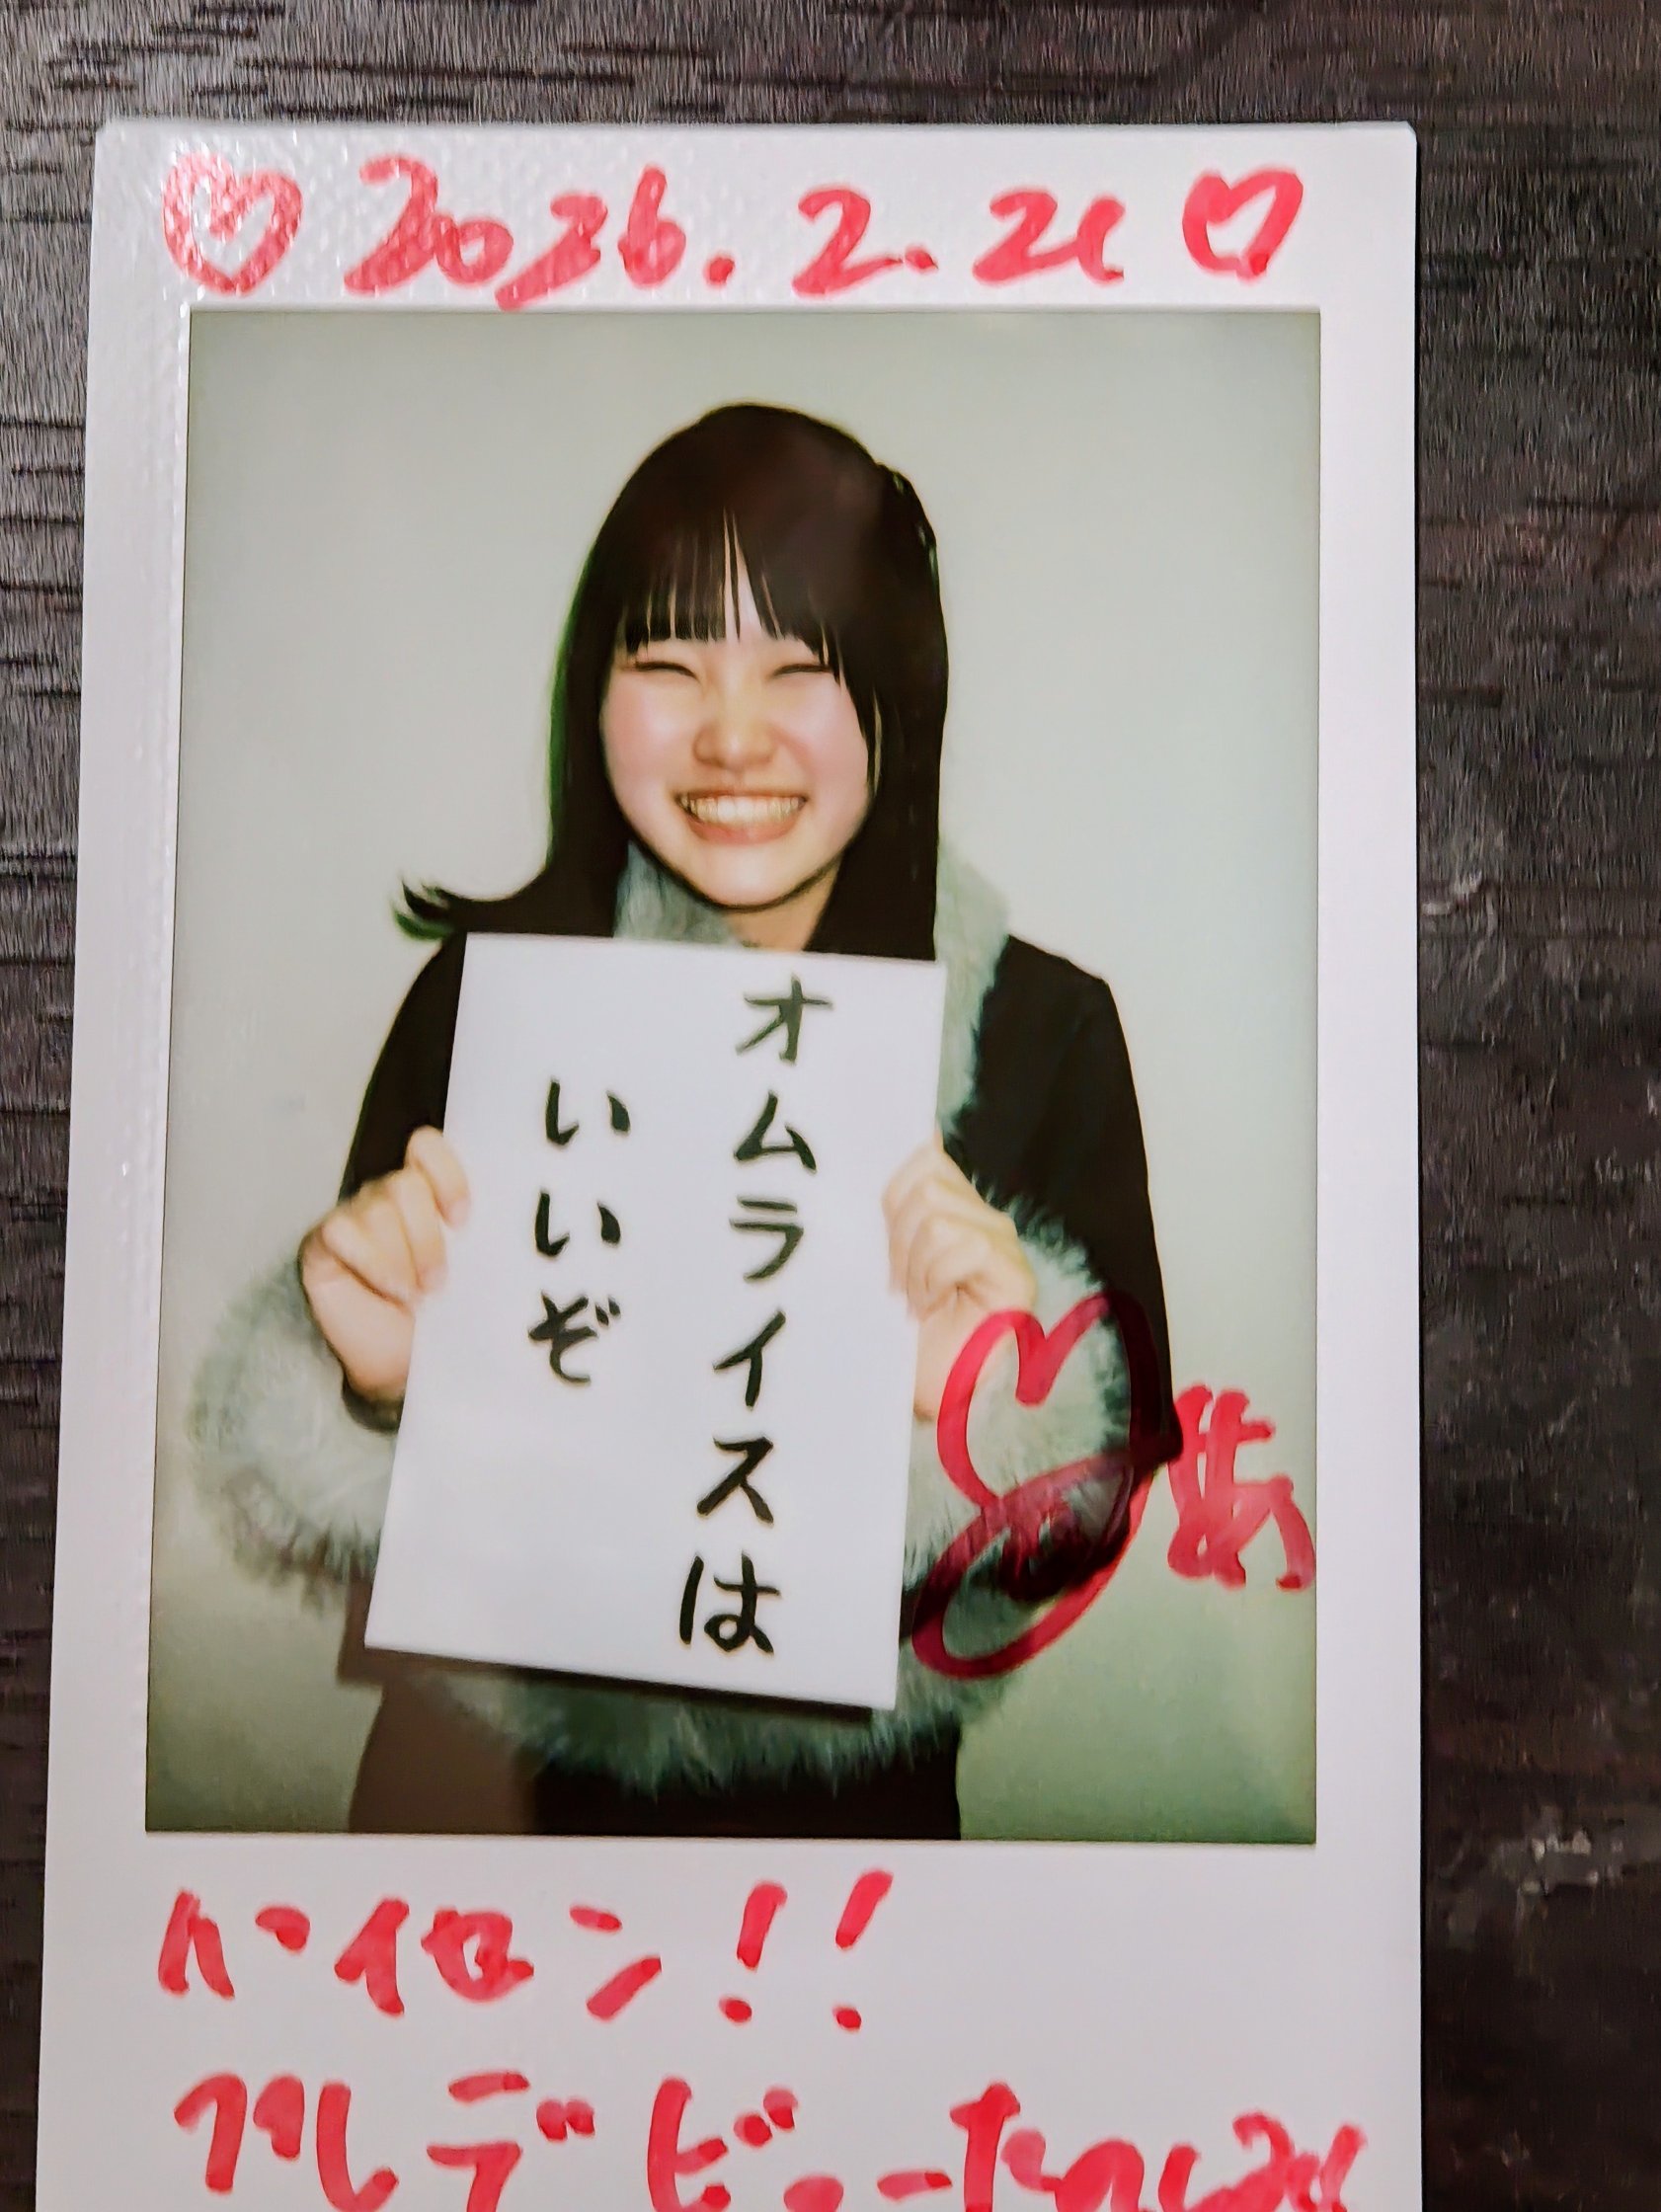 ♡2026.2.21♡
オムライスは
いいぞ
ハイセン!!
プレデビューたのしみ